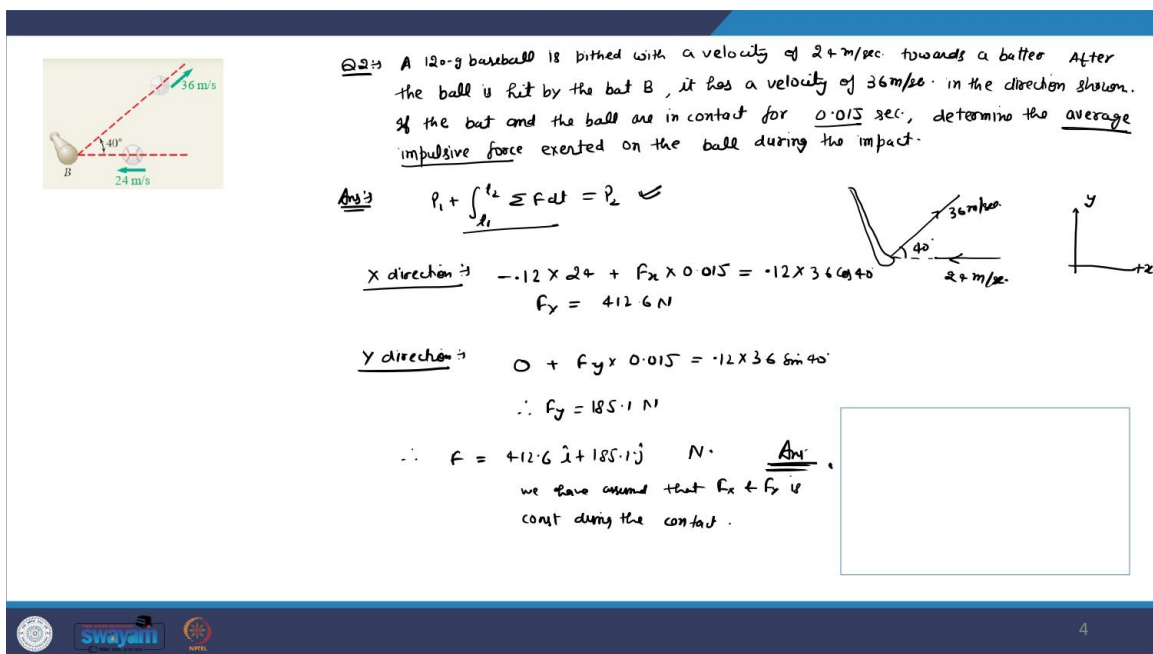 36 m/s
40°
B
24 m/s
Q2:⇒ A 120-g baseball is pithed with a velocity of 24 m/sec. towards a batter After
the ball is hit by the bat B, it has a velocity of 36 m/se. in the direction shown.
If the bat and the ball are in contact for 0.015 sec, determine the average
impulsive force exerted on the ball during the impact.
Ans:⇒ P₁ + ∫_{t₁}^{t₂} Σ F dt = P₂ ✓
36 m/sec.
40°
24 m/se.
y
+x
X direction:⇒ -.12 × 24 + Fx × 0.015 = .12 × 36 cos 40°
Fx = 412.6 N
Y direction:⇒ 0 + Fy × 0.015 = .12 × 36 sin 40°
∴ Fy = 185.1 N
∴ F = 412.6 î + 185.1 ĵ N. Ans.
we have assumed that Fx & Fy is
const during the contact.
swayam
NPTEL
4